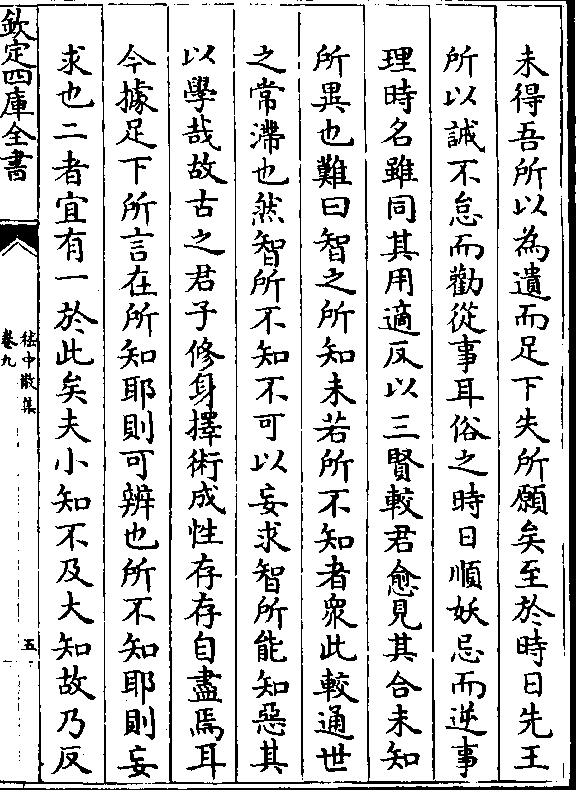 未得吾所以為遺而足下失所願矣至於時日先王
所以誡不怠而勸從事耳俗之時日順妖忌而逆事
理時名雖同其用適反以三賢較君愈見其合未知
所異也難曰智之所知未若所不知者衆此較通世
之常滯也然智所不知不可以妄求智所能知惡其
以學哉故古之君子修身擇術成性存存自盡焉耳
今據足下所言在所知耶則可辨也所不知耶則妄
求也二者宜有一於此矣夫小知不及大知故乃反
欽定四庫全書
嵇中散集
卷九
五